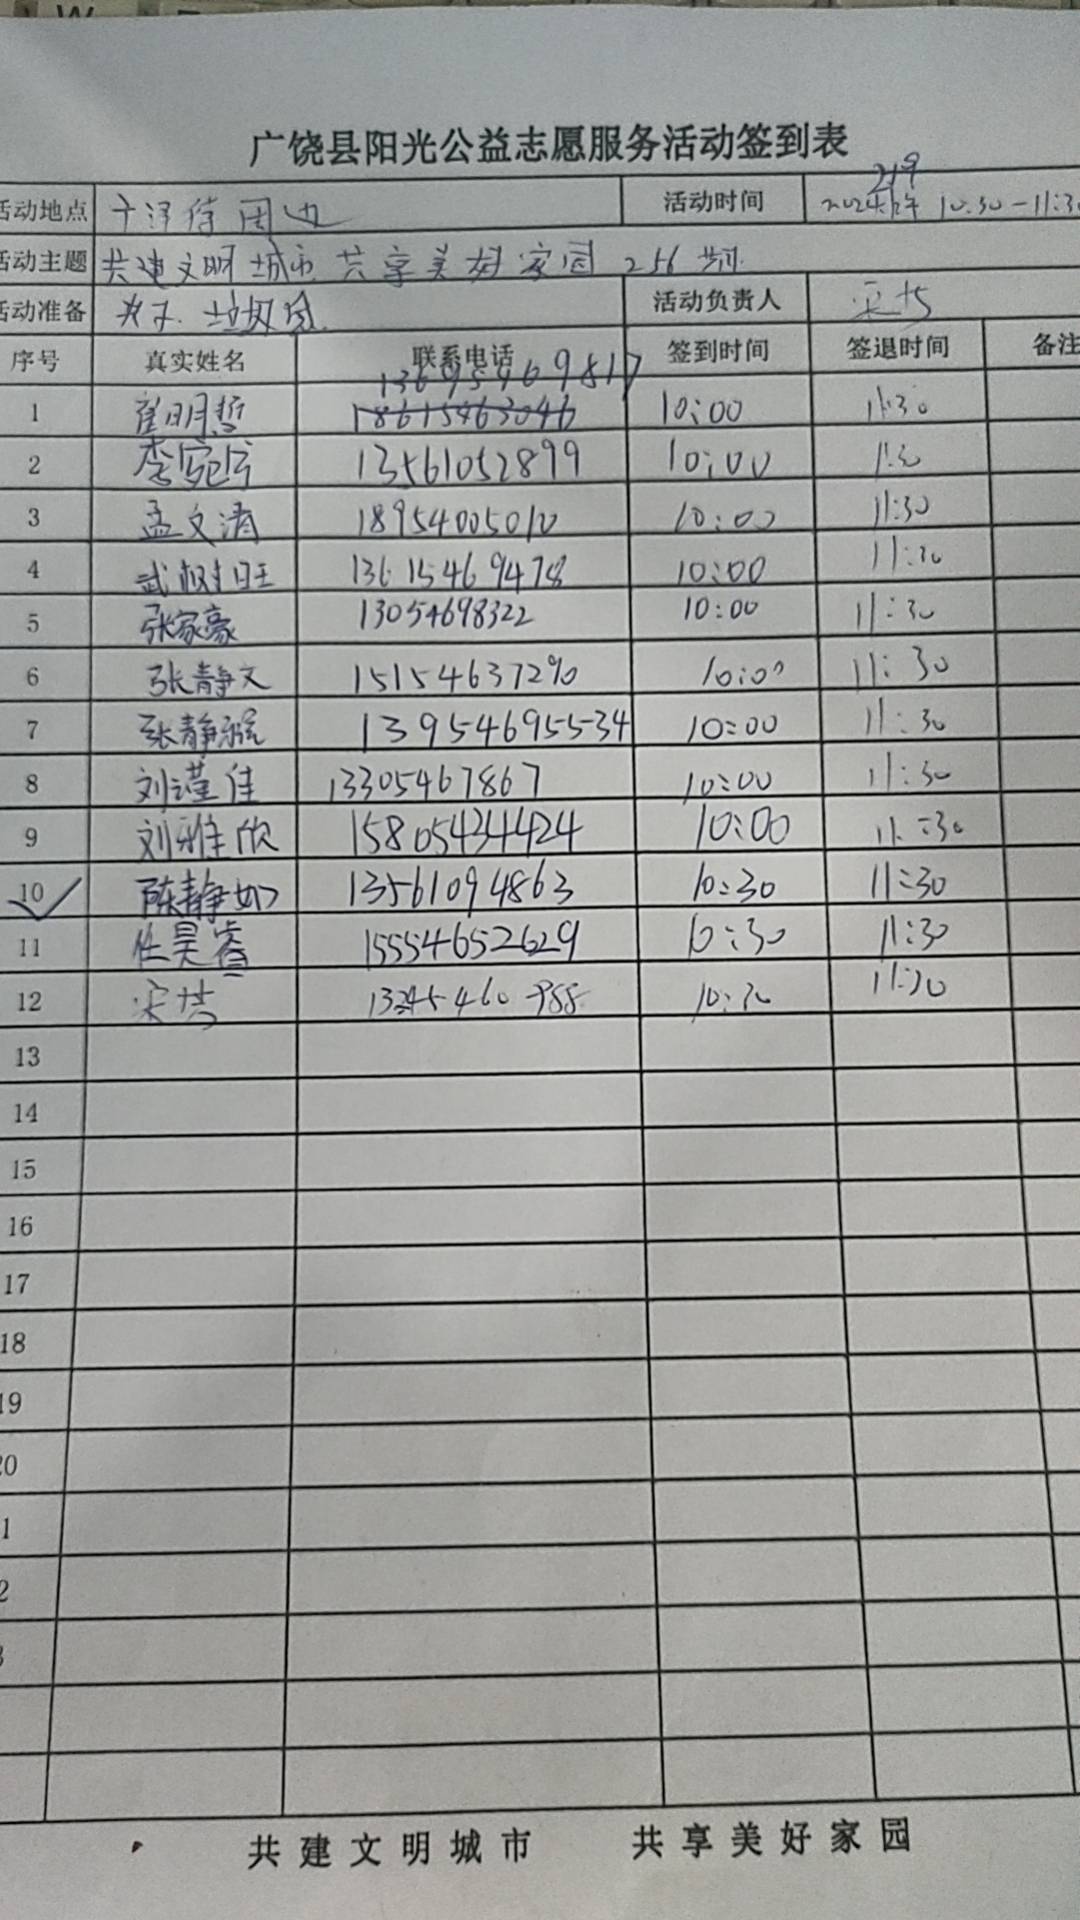 广饶县阳光公益志愿服务活动签到表
活动地点 周边 活动时间 219 10.30-11:30
活动主题 共建文明城市共享美好家园 256期
活动准备 夹子.垃圾袋 活动负责人
序号 真实姓名 联系电话 签到时间 签退时间 备注
13695469817
1 崔明哲 18615463046 10:00 11:30
2 李宛 13561052899 10:00 11:30
3 孟文清 18954005010 10:00 11:30
4 武树旺 13615469478 10:00 11:30
5 张家豪 13054698322 10:00 11:30
6 张静文 15154637290 10:00 11:30
7 张静 13954695534 10:00 11:30
8 刘瑾佳 13305467867 10:00 11:30
9 刘雅欣 15805434424 10:00 11:30
10 陈静如 13561094863 10:30 11:30
11 任昊睿 15554652629 10:30 11:30
12 宋 10:30 11:30
13
14
15
16
17
18
19
20
1
2
3
共建文明城市 共享美好家园